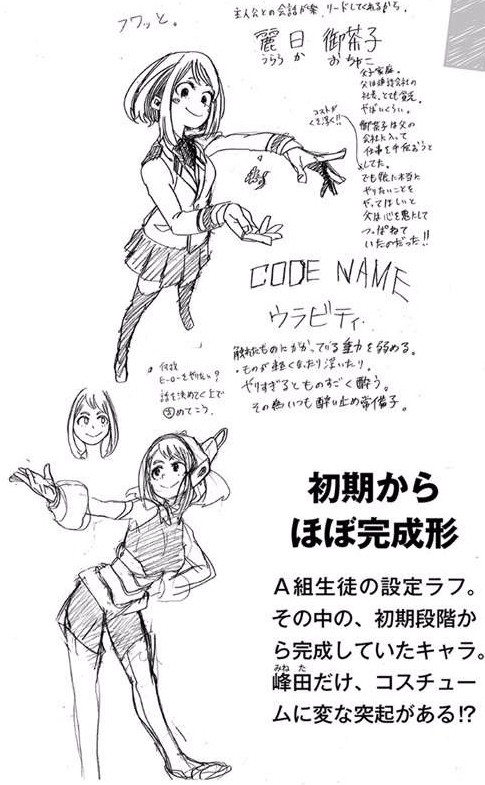 フワッと。
主人公との会話が楽、リードしてくれるから。
麗日 御茶子
うららか おちゃこ
コストが
くそ浮く!!
父子家庭。
父は建設会社の
社長、とても貧乏。
やばいくらい。
御茶子は父の
会社に入って
仕事を手伝おうと
してた。
でも娘に本当に
やりたいことを
やってほしいと
父は心を鬼にして
つっぱねて
いたのだった!!
CODE NAME
ウラビティ
触れたものにかかっている重力を弱める。
・ものが軽くなったり浮いたり。
やりすぎるとものすごく酔う。
その為いつも酔い止め常備子。
何故
ヒーローをやりたい?
話を決めてく上で
めてこう。
初期から
ほぼ完成形
A組生徒の設定ラフ。
その中の、初期段階か
ら完成していたキャラ。
みねた
峰田だけ、コスチュー
ムに変な突起がある!?